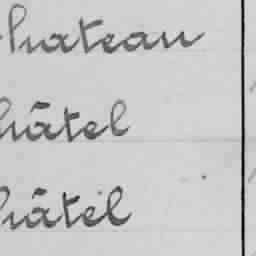 hateau
hâtel
hâtel